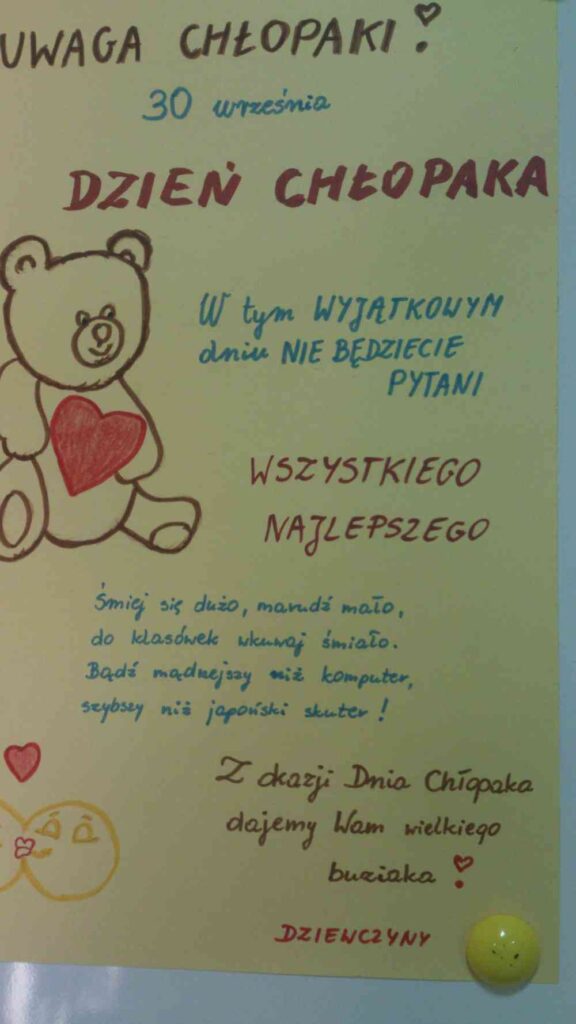 UWAGA CHŁOPAKI!
30 września
DZIEŃ CHŁOPAKA
W tym WYJĄTKOWYM
dniu NIE BĘDZIECIE
PYTANI
WSZYSTKIEGO
NAJLEPSZEGO
Śmiej się dużo, marudź mało,
do klasówek wkuwaj śmiało.
Bądź mądrzejszy niż komputer,
szybszy niż japoński skuter!
Z okazji Dnia Chłopaka
dajemy Wam wielkiego
buziaka!
DZIEWCZYNY